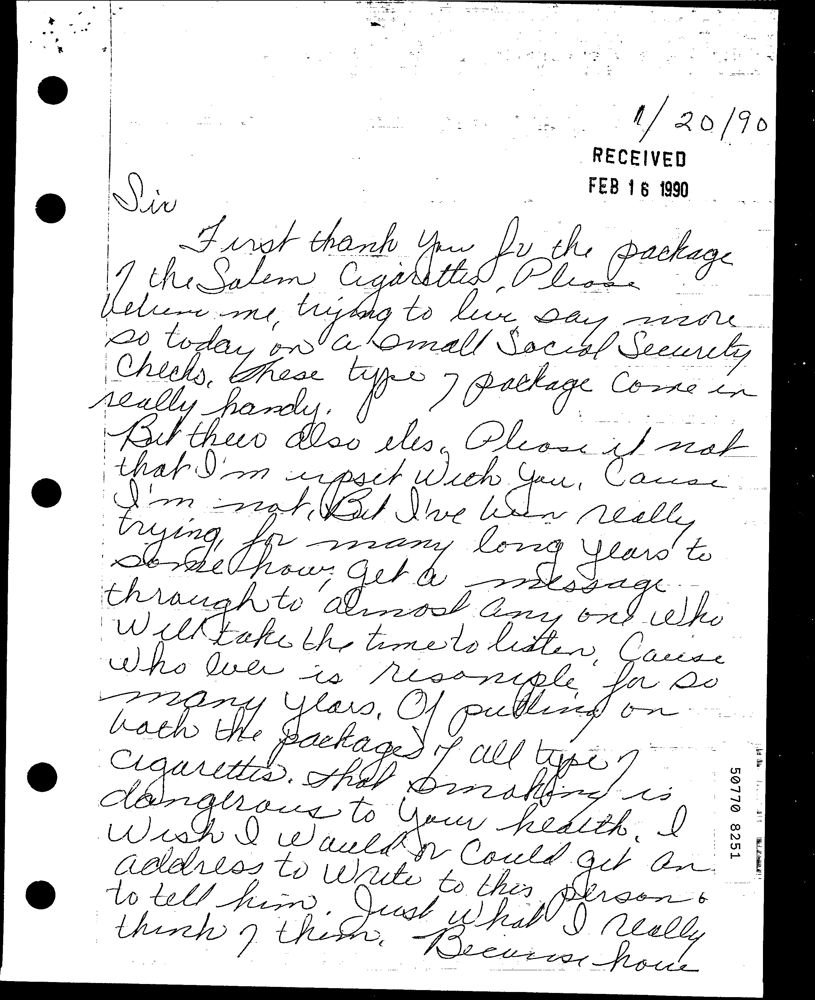 1/20/90
RECEIVED
FEB 16 1990
Sir
First thank you for the package
of the Salem Cigarettes. Please
believe me, trying to live say more
so today on a small Social Security
Checks. These type of package Come in
really handy.
But also . Please it not
that I'm upset with you. Cause
I'm not, But I've been really
trying, for many long years to
some how, get a message
through to almost any one who
will take the time to listen, Cause
who ever is for so
many years. Of putting on
both the packages of all type of
Cigarettes. that smoking is
dangerous to your health. I
wish I would or Could get an
address to write to this person &
to tell him. Just what I really
think of them. Because have
50770 8251